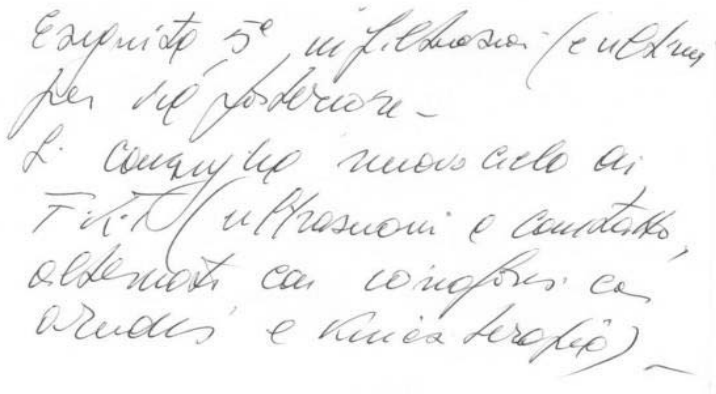 Eseguita 5ª infiltrazione (e ultima
per via posteriore -
Si consiglia nuovo ciclo di
F.K.T. (ultrasuoni a contatto,
alternati con ionoforesi con
e kinesiterapia) -